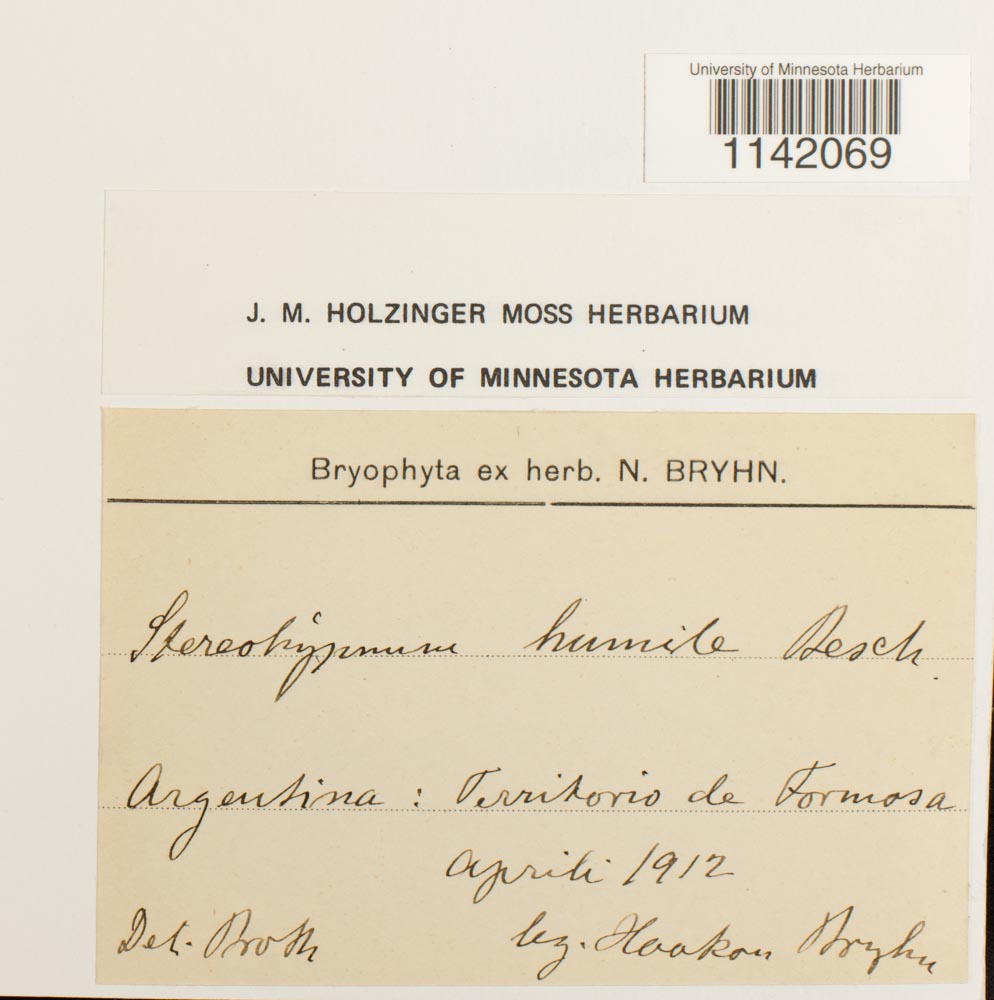 University of Minnesota Herbarium
1142069
J. M. HOLZINGER MOSS HERBARIUM
UNIVERSITY OF MINNESOTA HERBARIUM
Bryophyta ex herb. N. BRYHN.
Stereohypnum humile Besch.
Argentina : Territorio de Formosa
aprili 1912
Det. Broth
leg. Haakon Bryhn